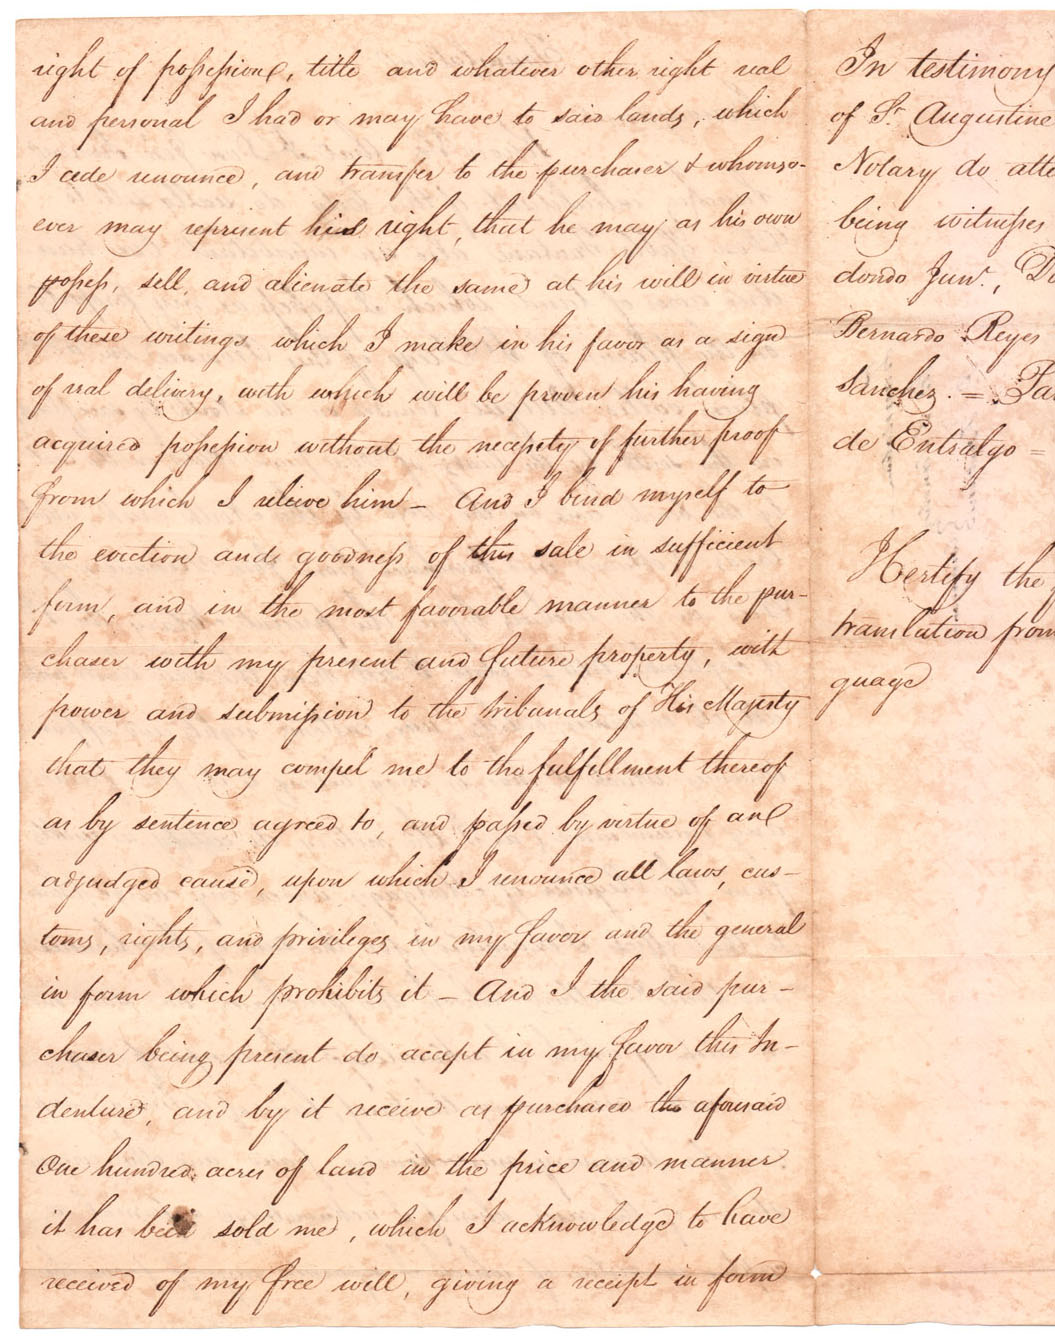 right of possession, title and whatever other right real
and personal I had or may have to said lands, which
I cede renounce, and transfer to the purchaser & whomso-
ever may represent his right, that he may as his own
possess, sell, and alienate the same at his will in virtue
of these writings which I make in his favor as a sign
of real delivery, with which will be proven his having
acquired possession without the necessity of further proof
from which I releive him - And I bind myself to
the eviction and goodness of this sale in sufficient
form, and in the most favorable manner to the pur-
chaser with my present and future property, with
power and submission to the tribunals of His Majesty
that they may compel me to the fulfillment thereof
as by sentence agreed to, and passed by virtue of an
adjudged cause, upon which I renounce all laws, cus-
toms, rights, and privileges in my favor and the general
in form which prohibits it - And I the said pur-
chaser being present do accept in my favor this In-
denture, and by it receive as purchased the aforesaid
One hundred acres of land in the price and manner
it has been sold me, which I acknowledge to have
received of my free will, giving a receipt in form
In testimony
of St. Augustine
Notary do atte
being witnesses
dondo Junr., D
Bernardo Reyes
Sanchez. = Pa
de Entralgo =
I certify the
translation from
guage